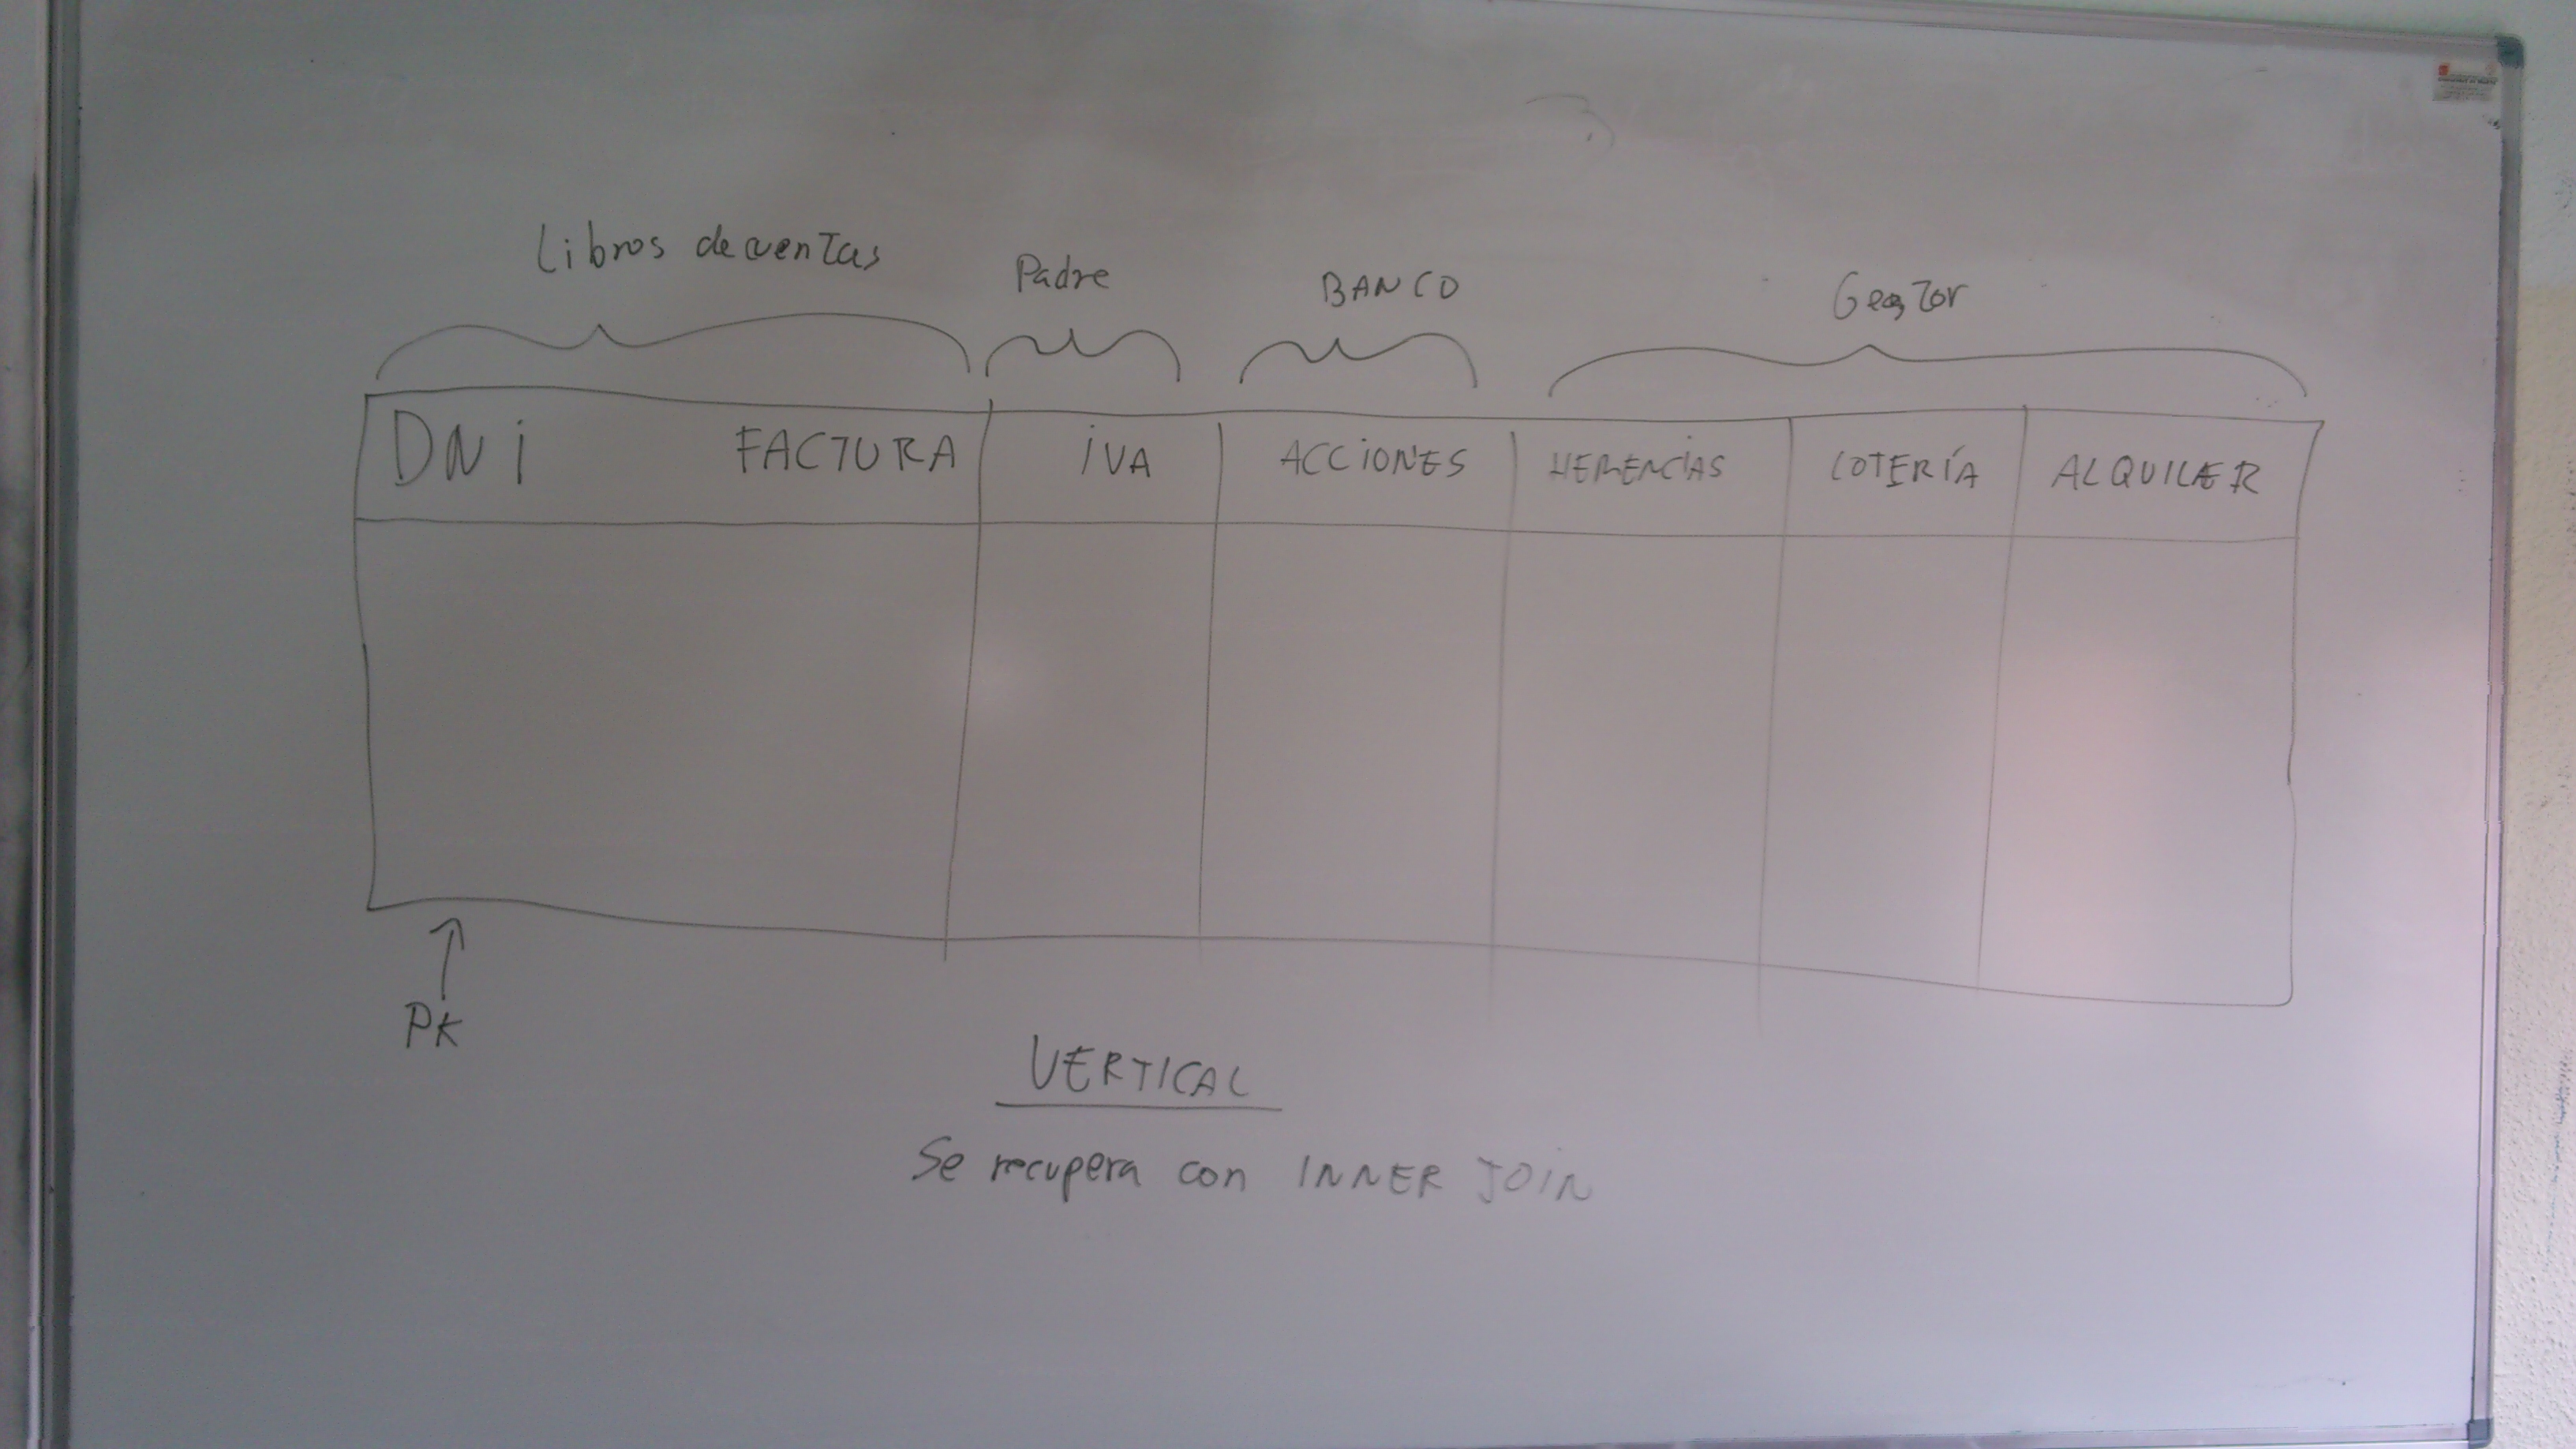 Libros de cuentas
Padre
BANCO
Gestor
DNi FACTURA iVA ACCiONES HERENCiAS LOTERÍA ALQUILER
PK
VERTICAL
Se recupera con INNER JOiN